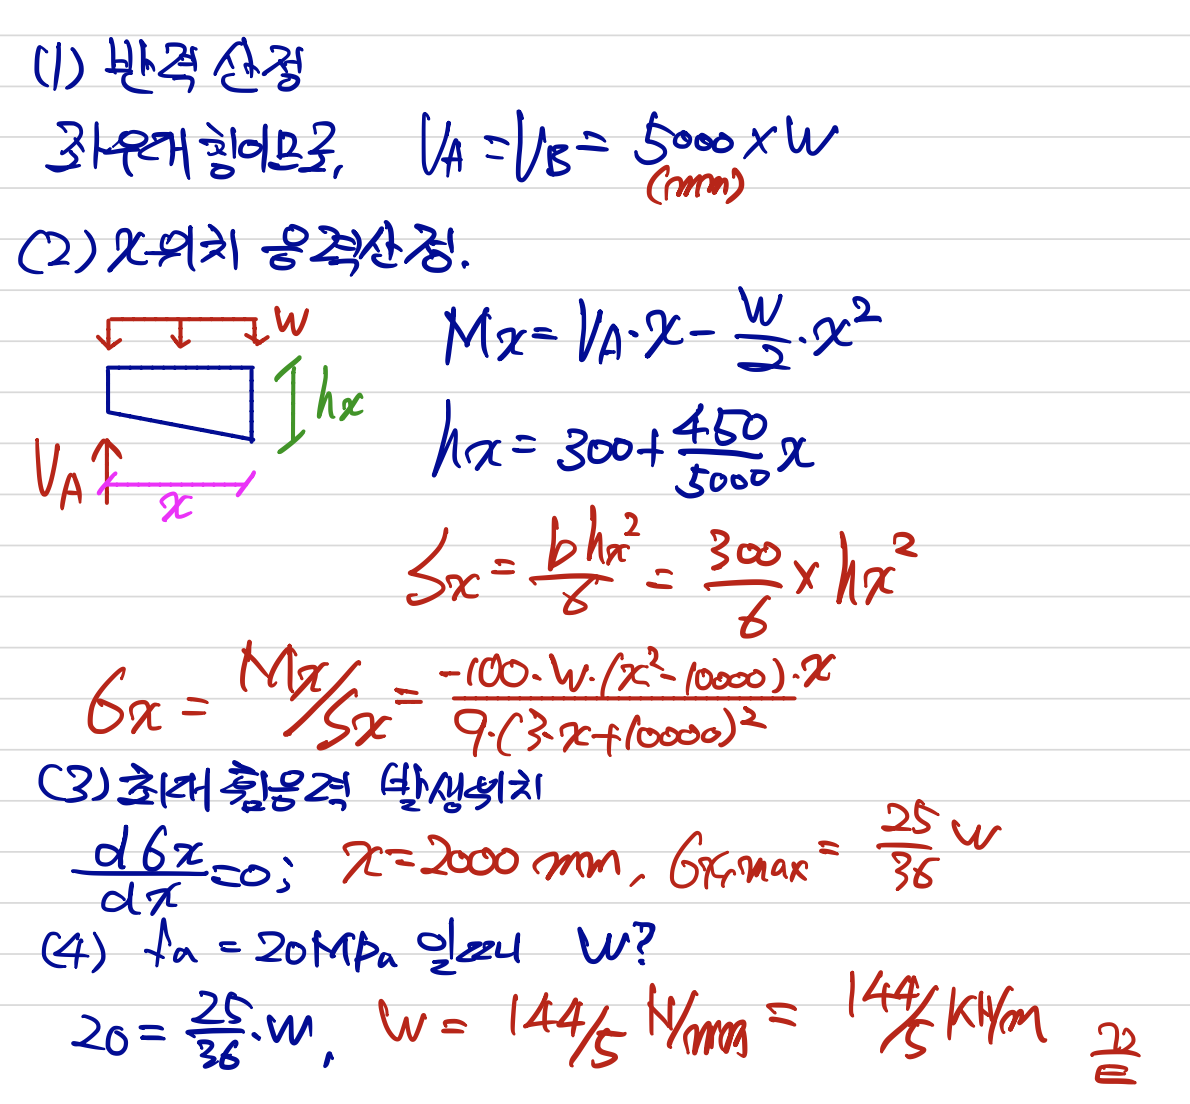 (1) 반력 산정
좌우대칭이므로, V_A = V_B = 5000 × w
(mm)
(2) x위치 응력산정.
w
M_x = V_A · x - w/2 · x²
h_x
h_x = 300 + 450/5000 x
V_A
x
S_x = b h_x²/6 = 300/6 × h_x²
σ_x = M_x/S_x = -100·w·(x²-10000)·x / 9·(3·x+10000)²
(3) 최대 휨응력 발생위치
dσ_x/dx = 0; x = 2000 mm, σ_x,max = 25/36 w
(4) f_a = 20MPa 일때 w?
20 = 25/36 · w, w = 144/5 N/mm = 144/5 kN/m